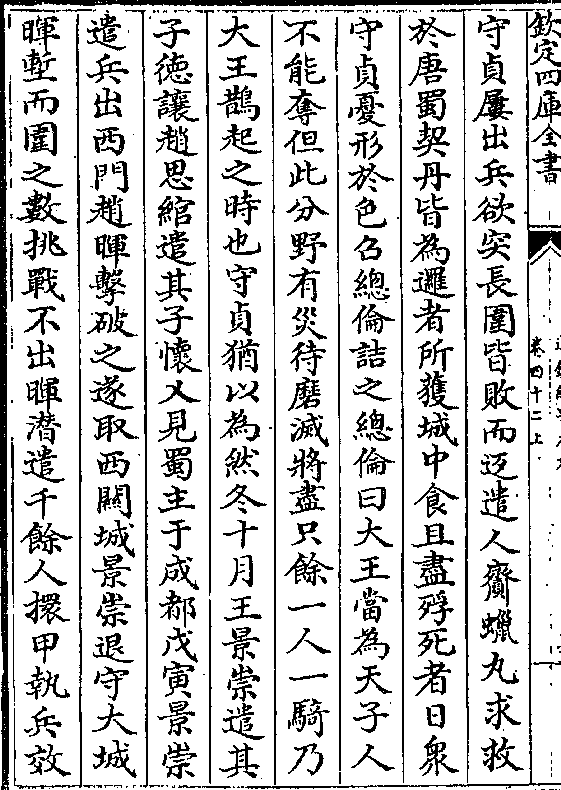 欽定四庫全書
卷四十二上
守貞屢出兵欲突長圍皆敗而返遣人齎蠟丸求救
於唐蜀契丹皆為邏者所獲城中食且盡殍死者日衆
守貞憂形於色召總倫詰之總倫曰大王當為天子人
不能奪但此分野有災待磨滅將盡只餘一人一騎乃
大王鵲起之時也守貞猶以為然冬十月王景崇遣其
子德讓趙思綰遣其子懷乂見蜀主于成都戊寅景崇
遣兵出西門趙暉擊破之遂取西關城景崇退守大城
暉塹而圍之數挑戰不出暉潛遣千餘人擐甲執兵效